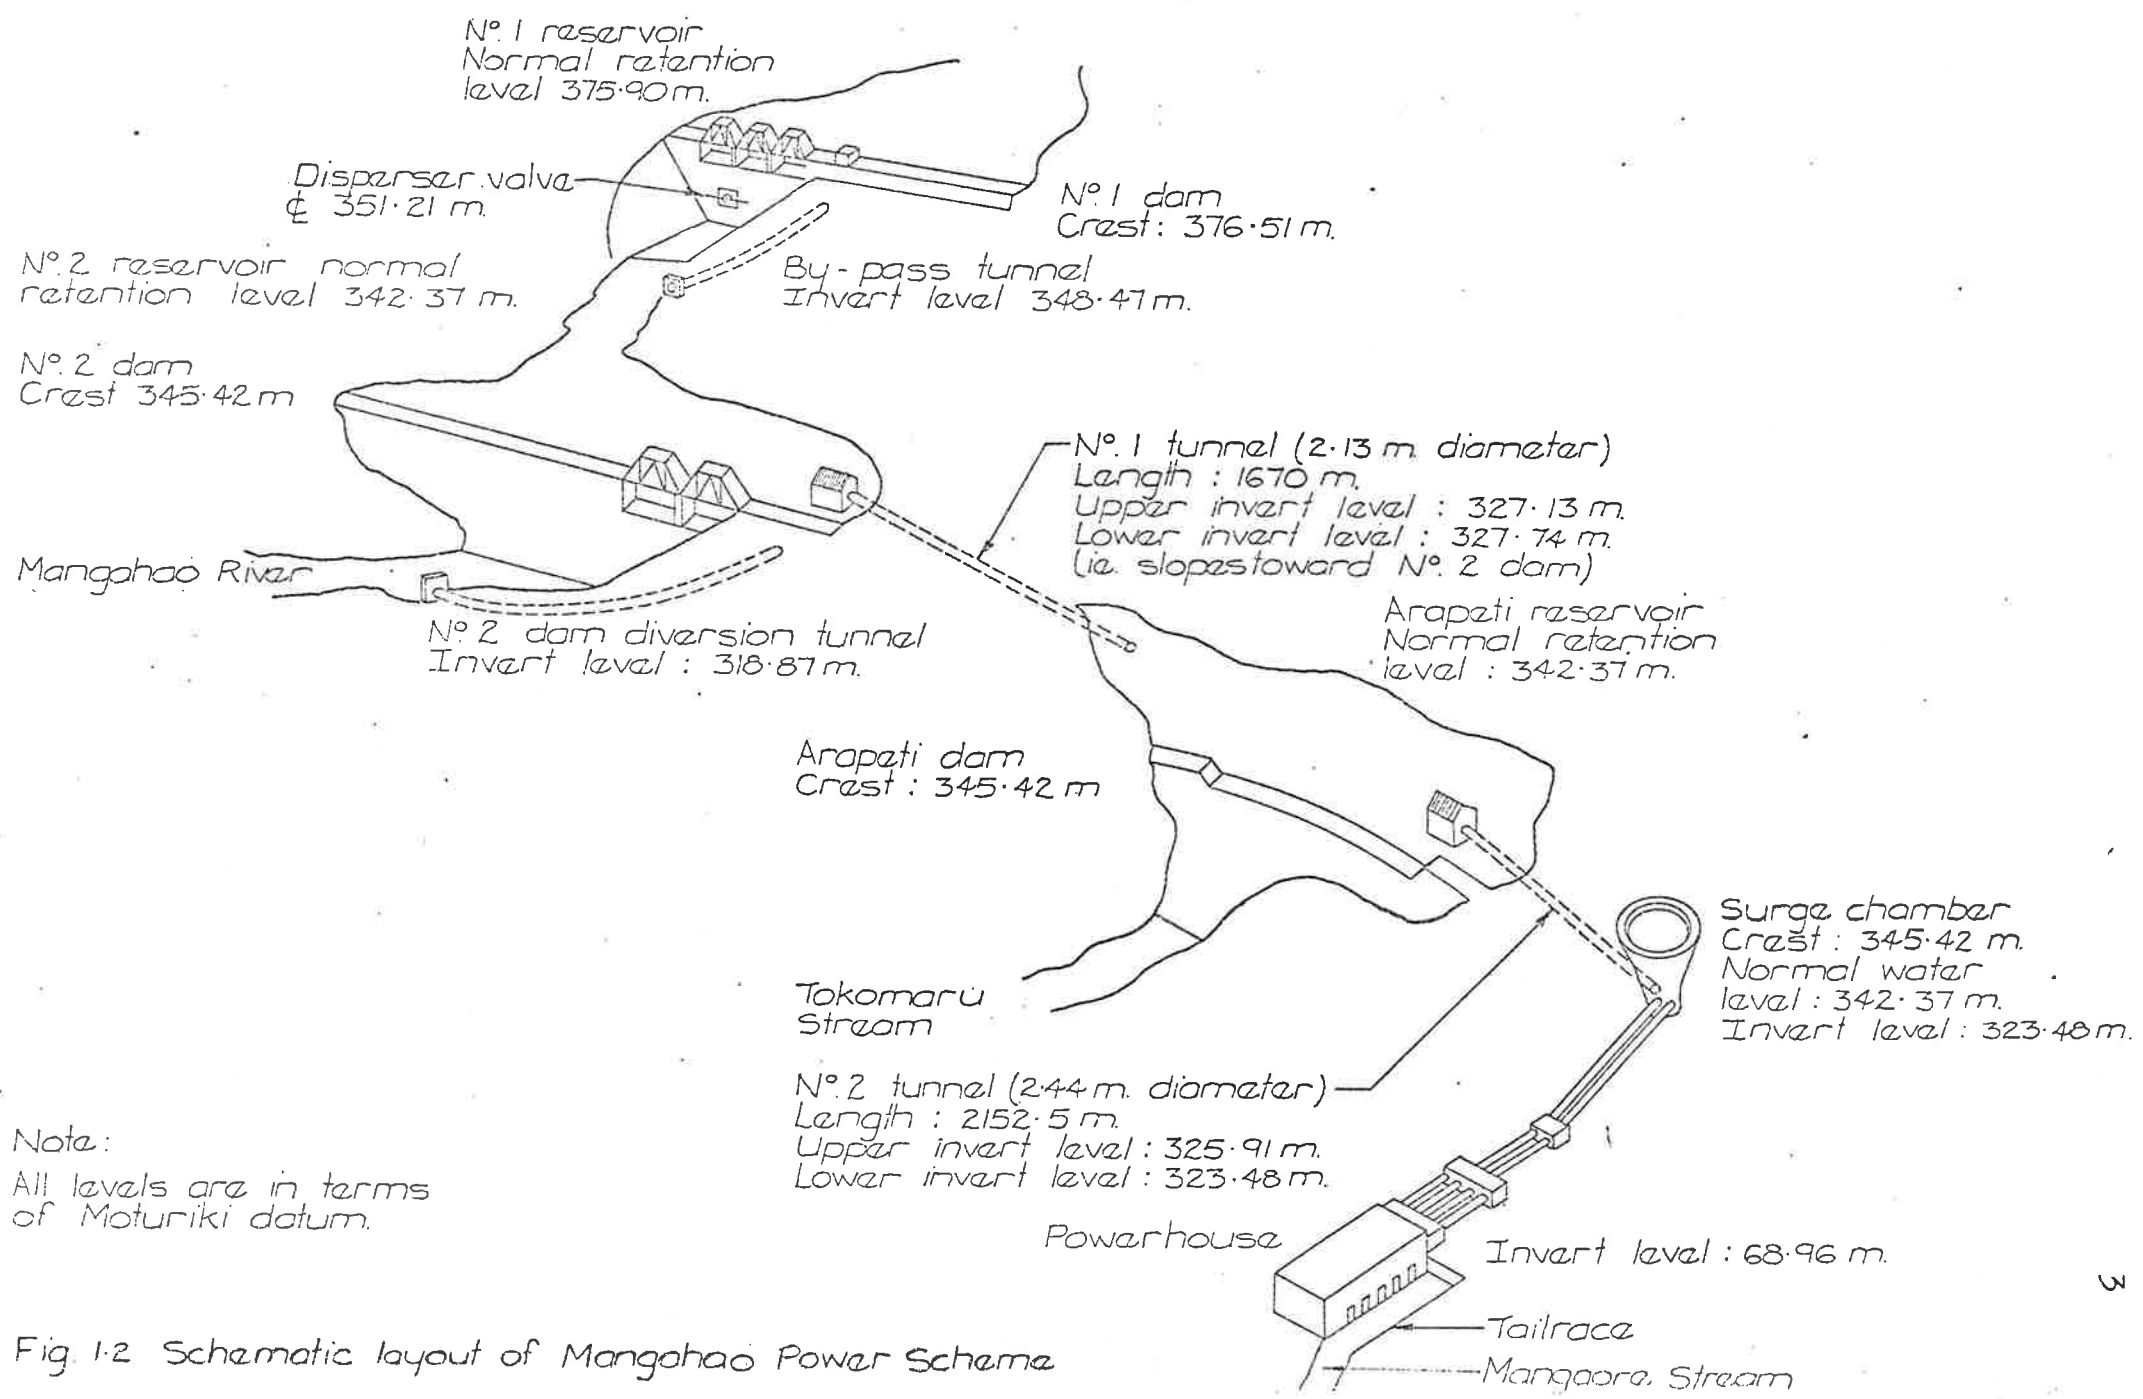 Nº. 1 reservoir
Normal retention
level 375·90m.
Disperser valve
℄ 351·21 m.
Nº. 1 dam
Crest: 376·51m.
Nº. 2 reservoir normal
retention level 342·37 m.
By-pass tunnel
Invert level 348·47m.
Nº. 2 dam
Crest 345·42m
Nº. 1 tunnel (2·13 m. diameter)
Length : 1670 m.
Upper invert level : 327·13 m.
Lower invert level : 327·74 m.
(ie. slopes toward Nº. 2 dam)
Mangahao River
Nº. 2 dam diversion tunnel
Invert level : 318·87m.
Arapeti reservoir
Normal retention
level : 342·37m.
Arapeti dam
Crest : 345·42 m
Surge chamber
Crest : 345·42 m.
Normal water
level : 342·37 m.
Invert level : 323·48m.
Tokomaru
Stream
Nº. 2 tunnel (2·44m. diameter)
Length : 2152·5 m.
Upper invert level : 325·91m.
Lower invert level : 323·48m.
Note:
All levels are in terms
of Moturiki datum.
Powerhouse
Invert level : 68·96 m.
3
Tailrace
Mangaore Stream
Fig. 1·2 Schematic layout of Mangahao Power Scheme